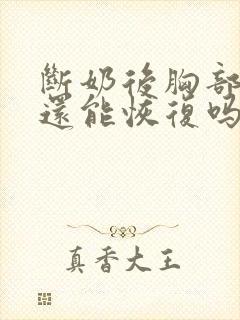 斷奶後胸部
還能恢復吗
真香大王